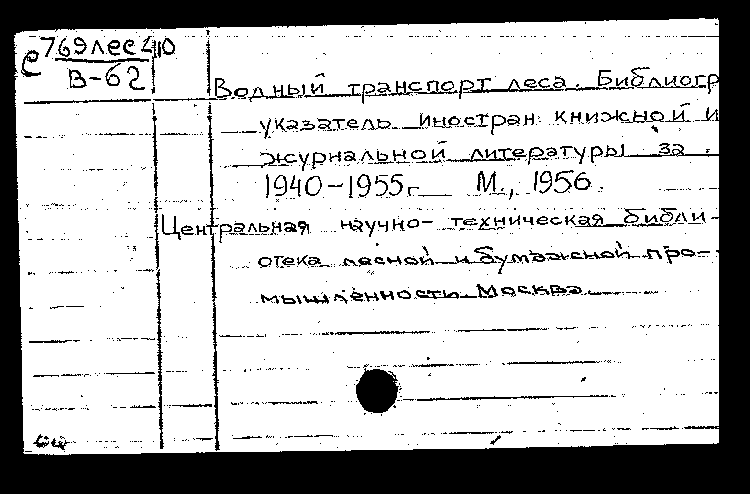 С 769лес 2110
В-62
Водный транспорт леса. Библиогр
указатель иностран. книжной и
журнальной литературы за
1940-1955г. М., 1956.
Центральная научно-техническая библи-
отека лесной и бумажной про-
мышленности. Москва.